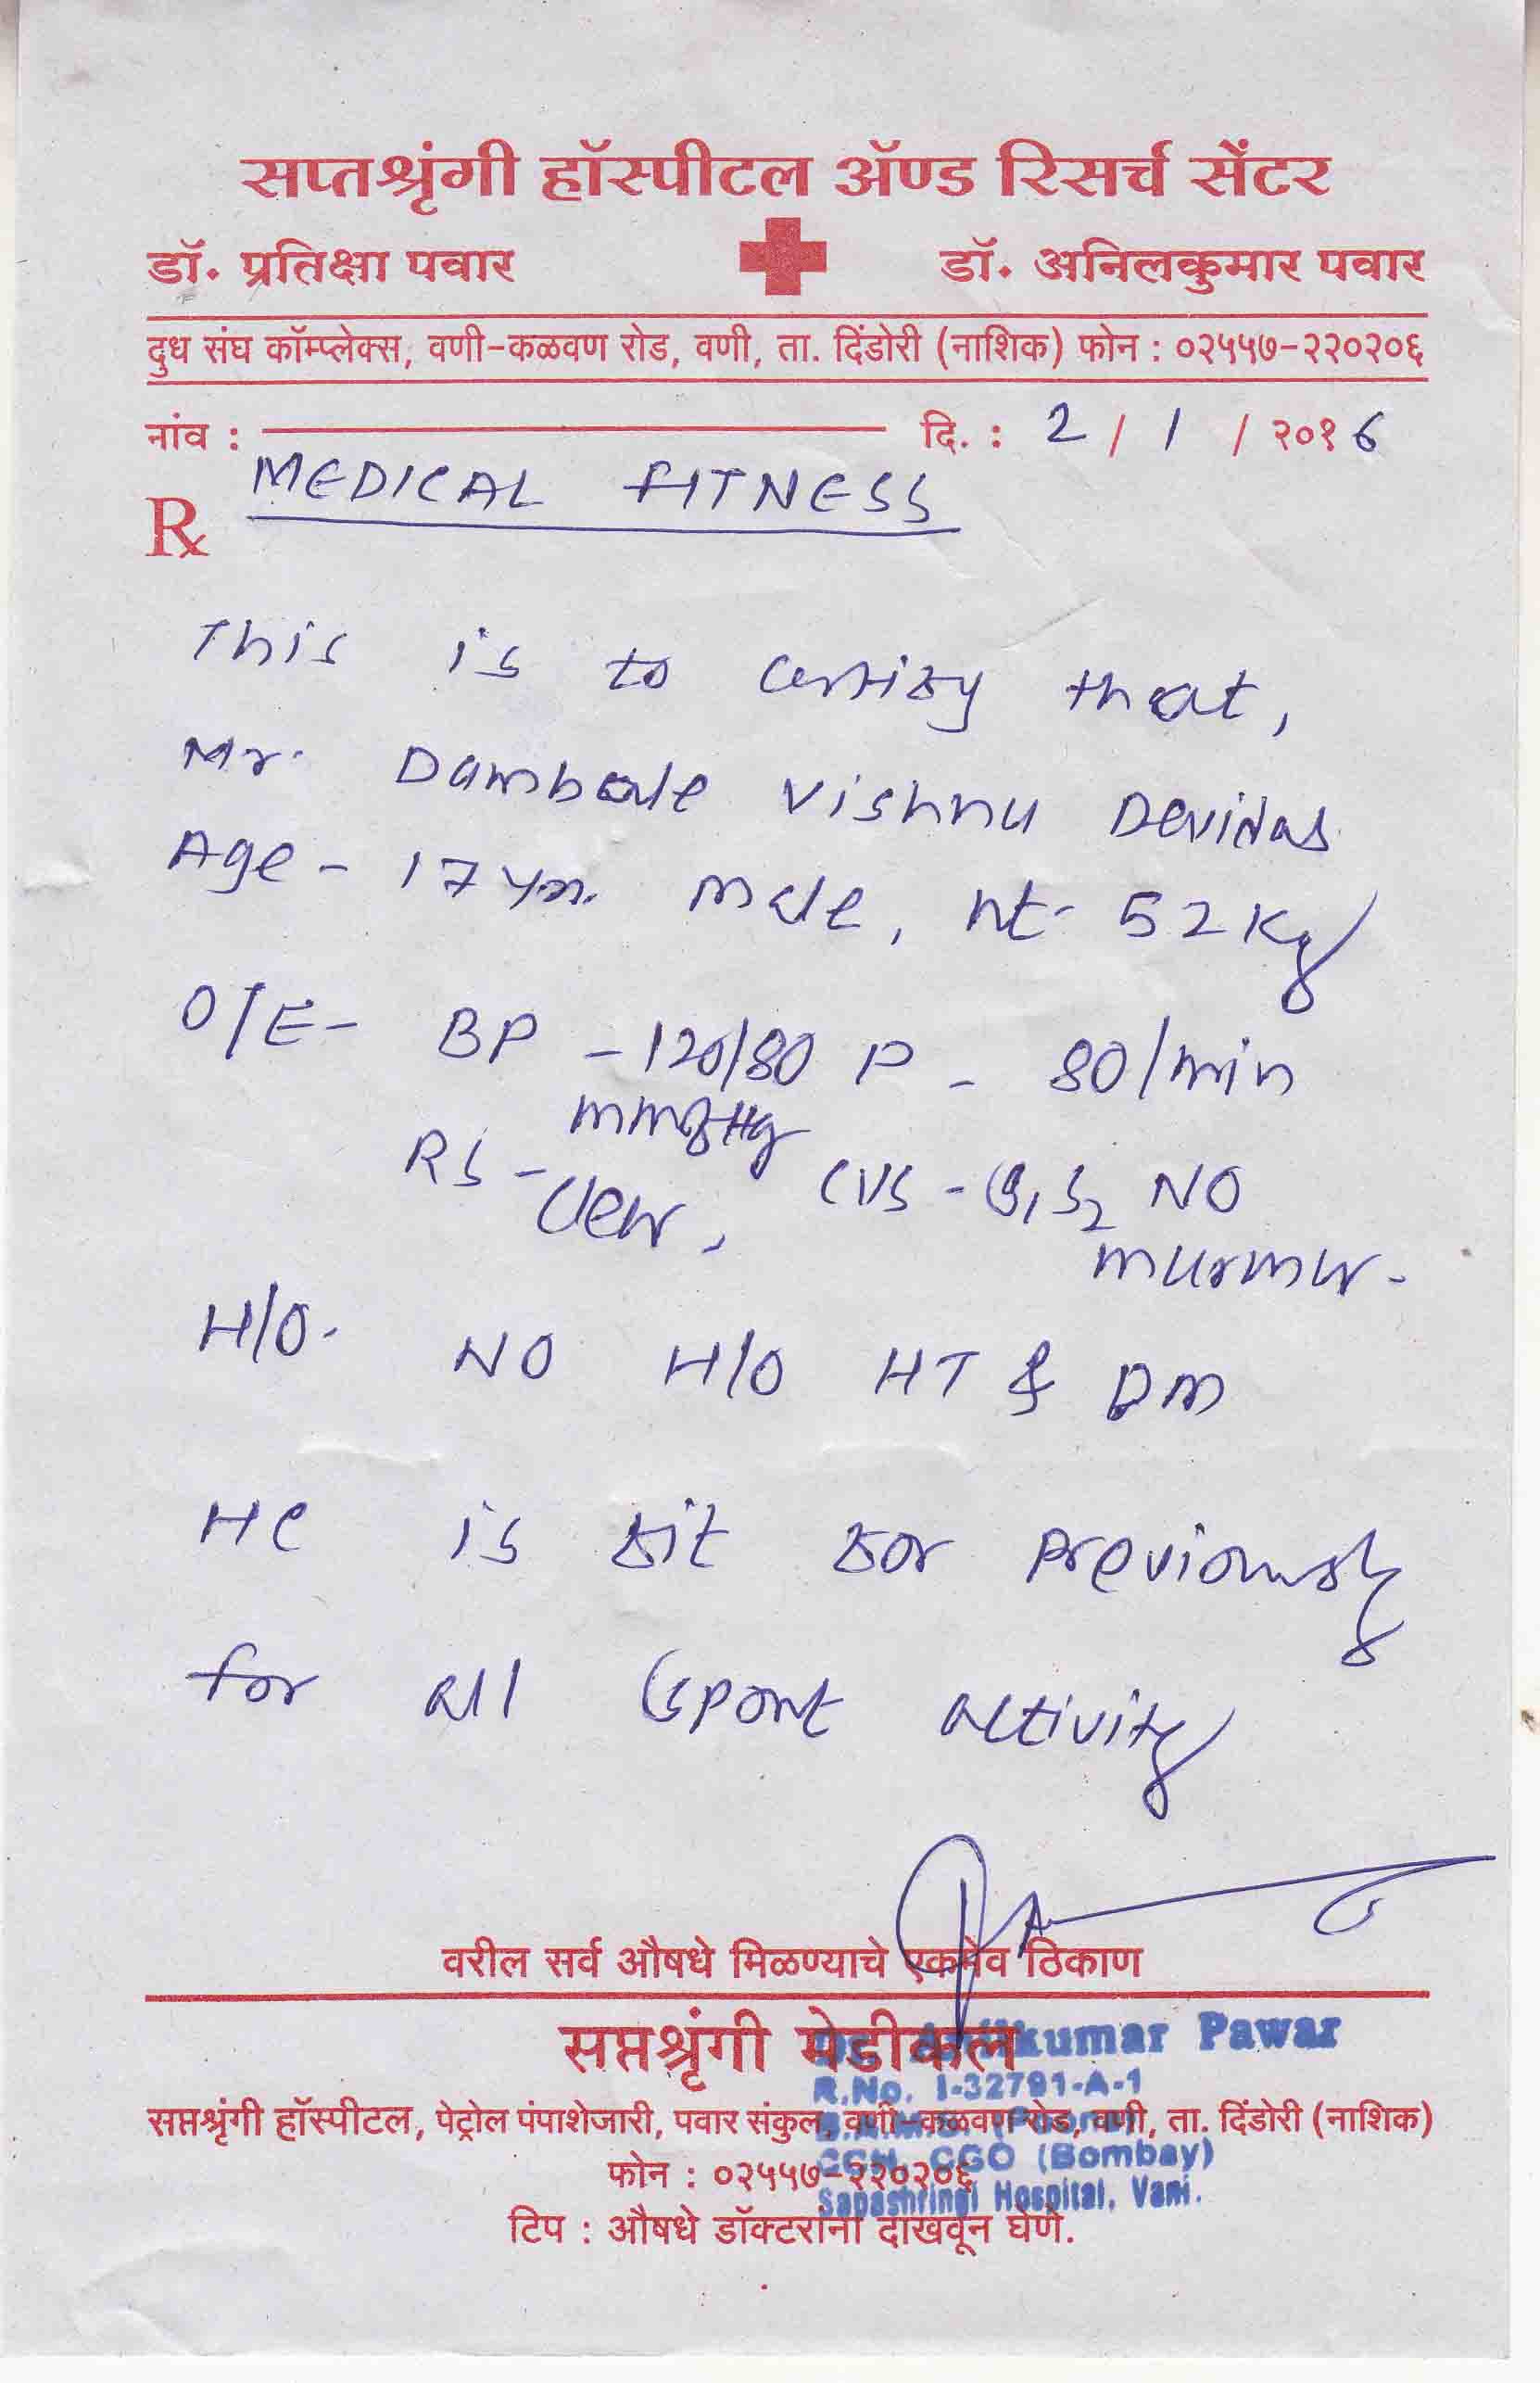 सप्तश्रृंगी हॉस्पीटल ॲण्ड रिसर्च सेंटर
डॉ. प्रतिक्षा पवार डॉ. अनिलकुमार पवार
दुध संघ कॉम्प्लेक्स, वणी-कळवण रोड, वणी, ता. दिंडोरी (नाशिक) फोन : ०२५५७-२२०२०६
नांव : दि. : 2 / 1 / २०१6
MEDICAL FITNESS
Rx
This is to certify that,
Mr. Dambale Vishnu Devidas
Age - 17 yrs. male, wt- 52 kg
O/E- BP - 120/80 P - 80/min
mmofHg
RS - Clear, CVS - S1S2 NO
murmur.
H/O. NO H/O HT & DM
He is fit for previously
for all sport activity
वरील सर्व औषधे मिळण्याचे एकमेव ठिकाण
सप्तश्रृंगी मेडीकल
Anilkumar Pawar
R.No. I-32791-A-1
सप्तश्रृंगी हॉस्पीटल, पेट्रोल पंपाशेजारी, पवार संकुल, वणी-कळवण रोड, वणी, ता. दिंडोरी (नाशिक)
CGO (Bombay)
फोन : ०२५५७-२२०२०६
Sapashringi Hospital, Vani.
टिप : औषधे डॉक्टरांना दाखवून घेणे.